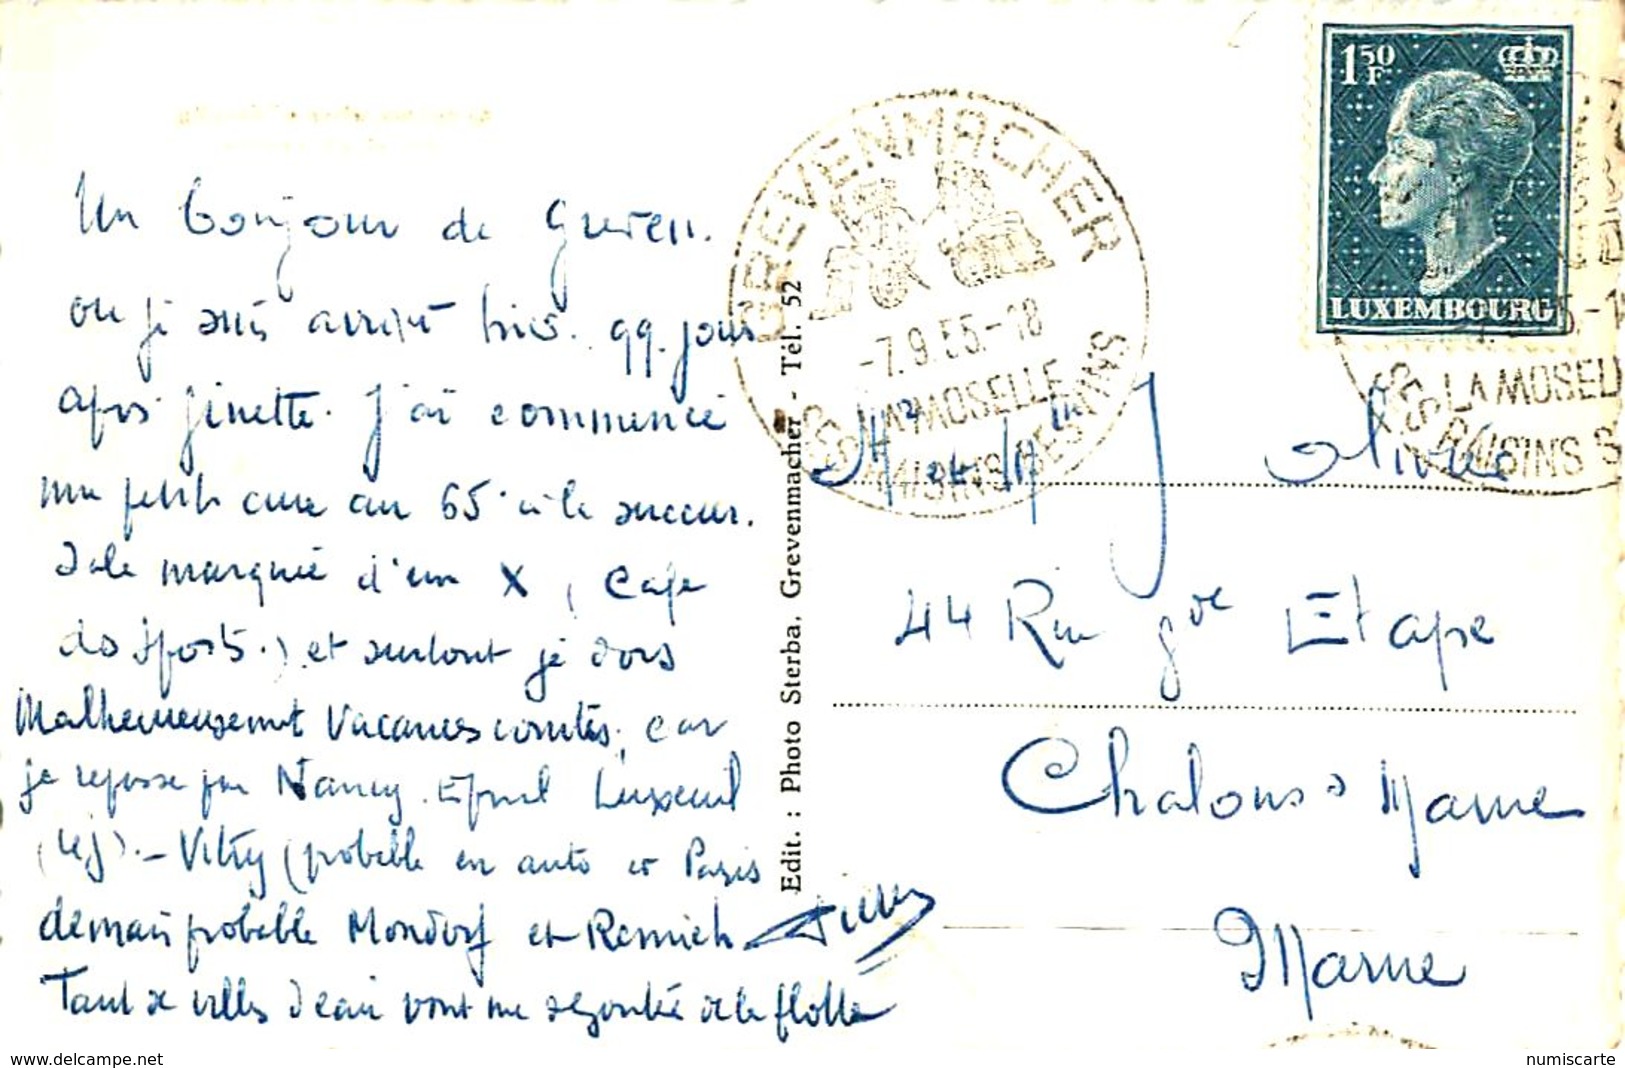 Un bonjour de Greven.
ou je suis arrivé hier. qq. jours
après Ginette. J'ai commencé
ma petite cure au 65 à la succur.
sale marquée d'un X, (Café
des Sports.) et surtout je dors
Malheureusement Vacances comptées, car
je repasse par Nancy. Luxeuil
Vitry (probable en auto et Paris
demain probable Mondorf et Remich
Tant de villes d'eau vont me de la flotte
Edit. : Photo Sterba, Grevenmacher - Tél. 52
GREVENMACHER
-7.9.55.-18
LA MOSELLE
SES RAISINS SES VINS
1.50 F.
LUXEMBOURG
LA MOSEL
SES RAISINS S
Mr et Mme Olivier
44 Rue gde Etape
Chalons s Marne
Marne
www.delcampe.net
numiscarte